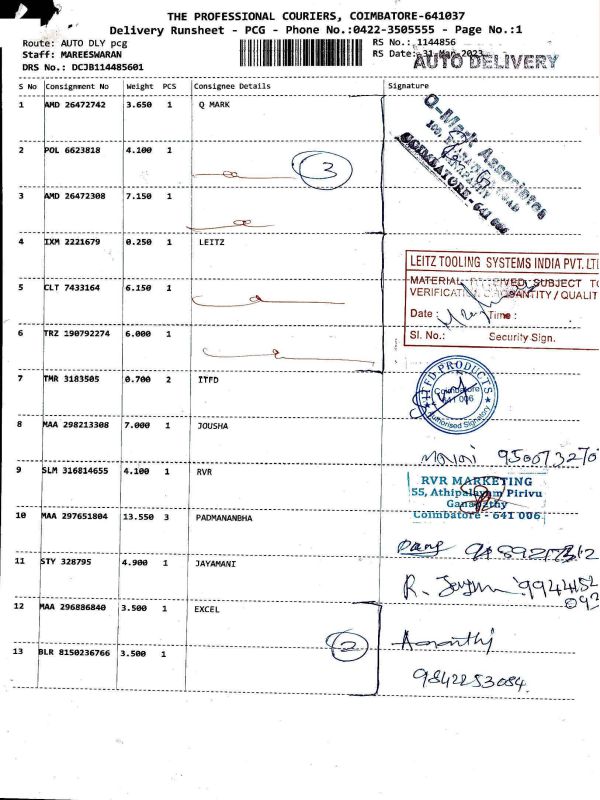 THE PROFESSIONAL COURIERS, COIMBATORE-641037
Delivery Runsheet - PCG - Phone No.:0422-3505555 - Page No.:1
Route: AUTO DLY pcg
RS No.: 1144856
Staff: MAREESWARAN
RS Date: 31-Mar-2023
DRS No.: DCJB114485601
AUTO DELIVERY
S No Consignment No Weight PCS Consignee Details Signature
1 AMD 26472742 3.650 1 Q MARK
Q-Mark Associates
COIMBATORE - 641 006
2 POL 6623818 4.100 1
3
3 AMD 26472308 7.150 1
4 IXM 2221679 0.250 1 LEITZ
LEITZ TOOLING SYSTEMS INDIA PVT. LTD
MATERIAL RECEIVED SUBJECT TO
VERIFICATION QUANTITY / QUALIT
Date : Time :
Sl. No.: Security Sign.
5 CLT 7433164 6.150 1
6 TRZ 190792274 6.000 1
7 TMR 3183505 0.700 2 ITFD
ITFD PRODUCTS
Coimbatore
641 006
Authorised Signatory
8 MAA 298213308 7.000 1 JOUSHA
9 SLM 316814655 4.100 1 RVR
RVR MARKETING
55, Athipalayam Pirivu
Ganapathy
Coimbatore - 641 006
10 MAA 297651804 13.550 3 PADMANANBHA
11 STY 328795 4.900 1 JAYAMANI
12 MAA 296886840 3.500 1 EXCEL
Ananthi
2
13 BLR 8150236766 3.500 1
9842253084